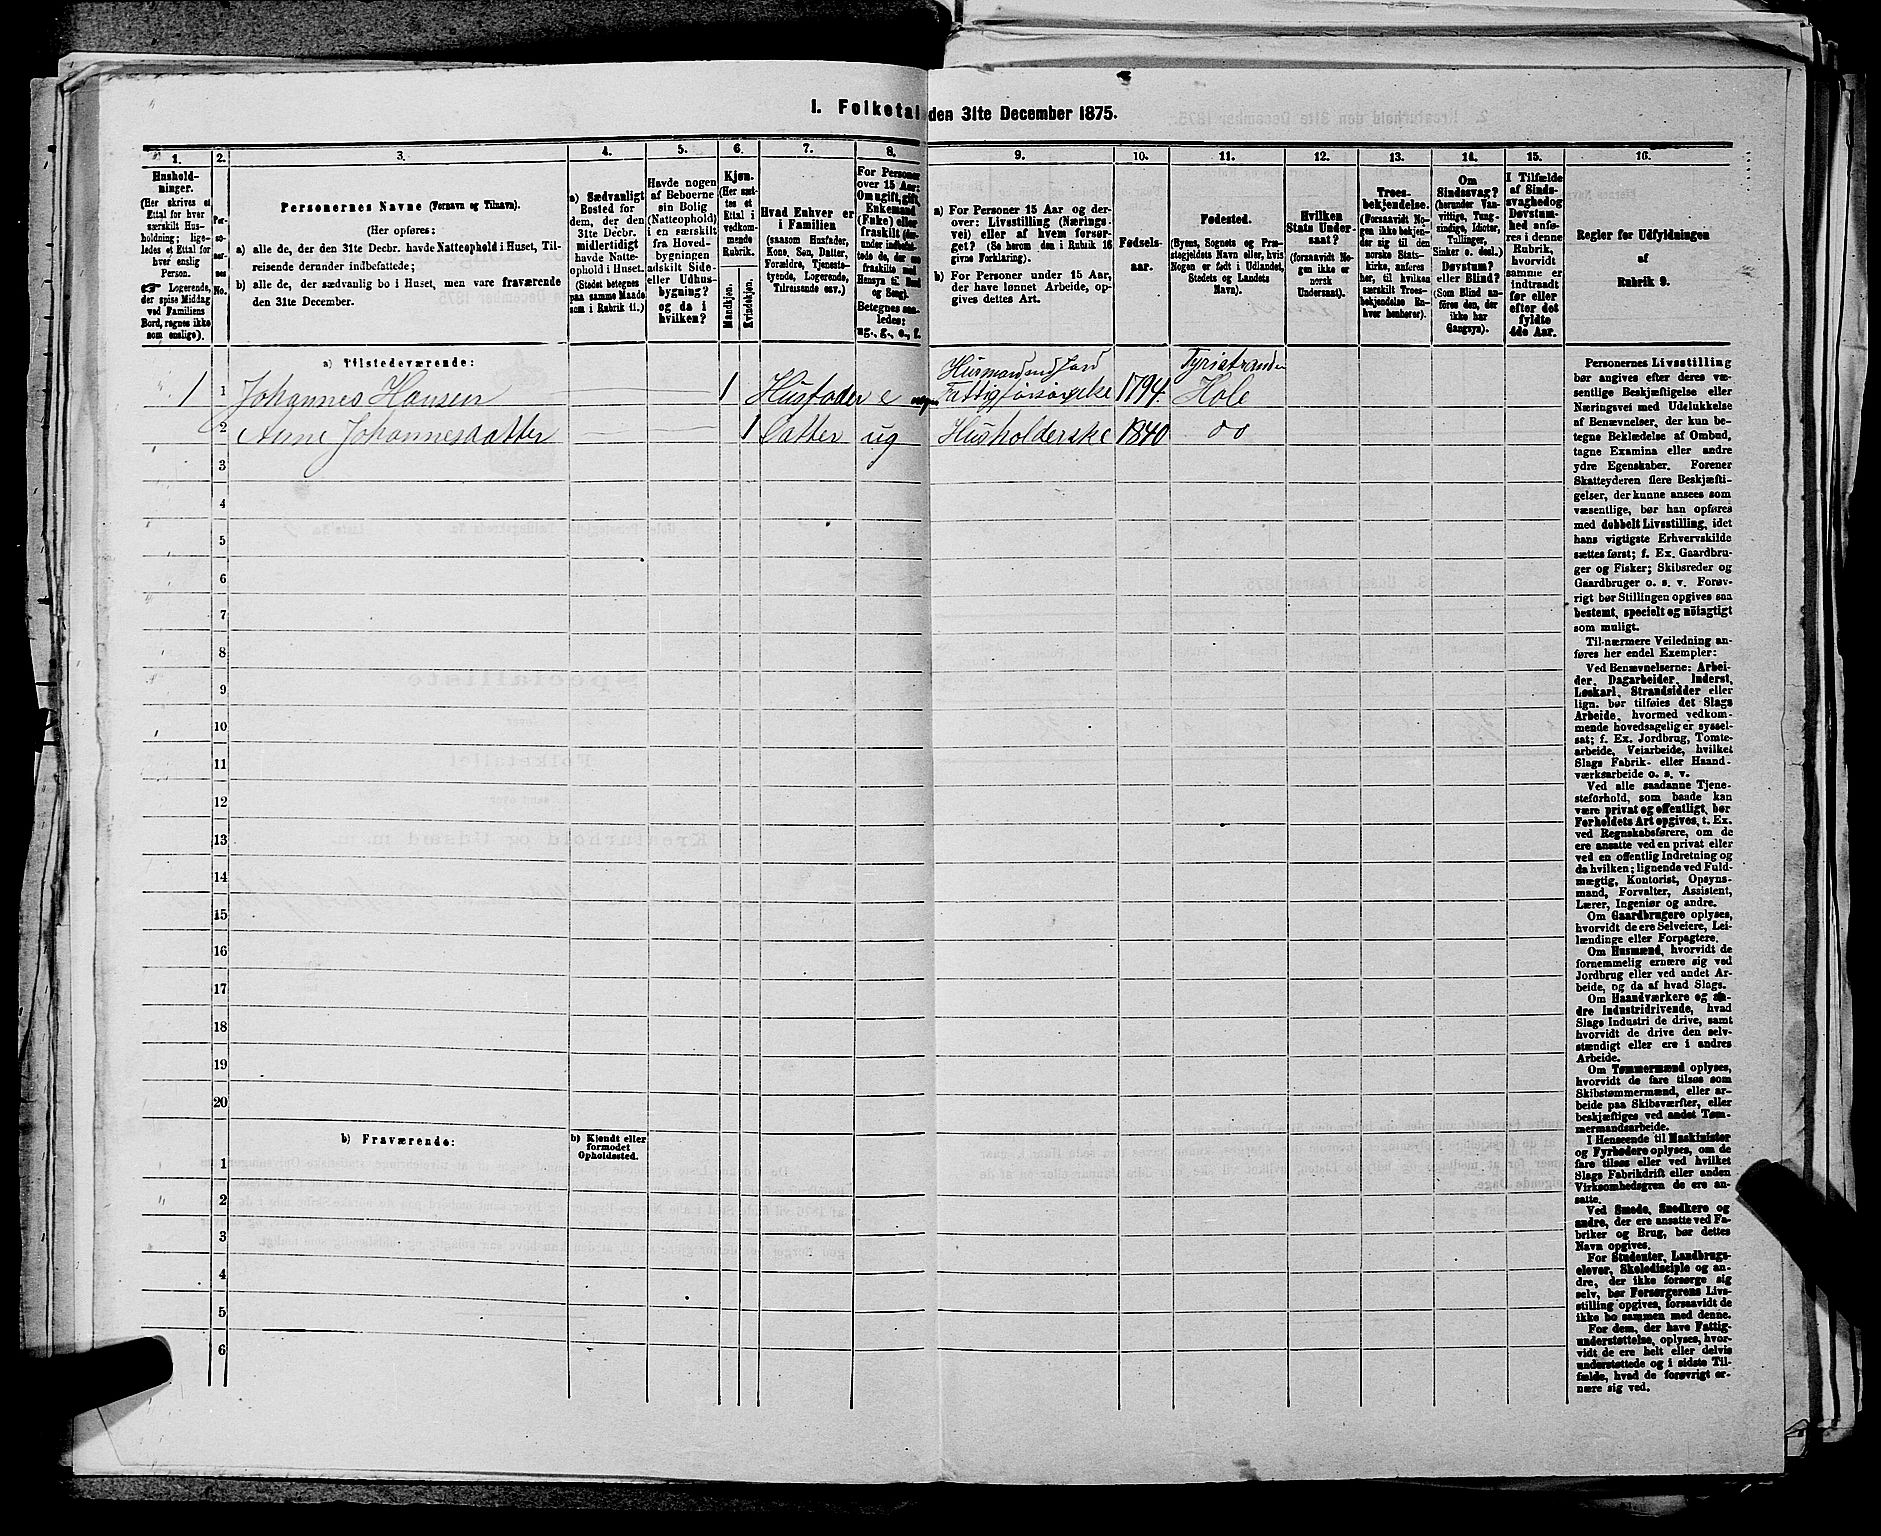 I. Folketal den 31te December 1875.
1. 2. 3. 4. 5. 6. 7. 8. 9. 10. 11. 12. 13. 14. 15. 16.
Hushold-
ninger.
(Her skrives et
Ettal for hver
særskilt Hus-
holdning; lige-
ledes et Ettal for
hver enslig
Person.
☞ Logerende,
der spise Middag
ved Familiens
Bord, regnes ikke
som enslige).
Per-
so-
ner-
nes
No.
Personernes Navne (Fornavn og Tilnavn).
(Her opføres:
a) alle de, der den 31te Decbr. havde Natteophold i Huset, Til-
reisende derunder indbefattede;
b) alle de, der sædvanlig bo i Huset, men vare fraværende
den 31te December.
a) Sædvanligt
Bosted for
dem, der den
31te Decbr.
midlertidigt
havde Natte-
ophold i Huset.
(Stedet betegnes
paa samme Maade
som i Rubrik 11.)
Havde nogen
af Beboerne
sin Bolig
(Natteophold)
i en særskilt
fra Hoved-
bygningen
adskilt Side-
eller Udhus-
bygning?
og da i
hvilken?
Kjøn.
(Her sæt-
tes et
Ettal i
vedkom-
mende
Rubrik.
Mandkjøn.
Kvindekjøn.
Hvad Enhver er
i Familien
(saasom Husfader,
Kone, Søn, Datter,
Forældre, Tjeneste-
tyende, Logerende,
Tilreisende osv.)
For Personer
over 15 Aar:
Om ugift, gift,
Enkemand
(Enke) eller
fraskilt
Betegnes saa-
ledes:
ug., g., e., f.
a) For Personer 15 Aar og der-
over: Livsstilling (Nærings-
vei) eller af hvem forsør-
get? (Se herom den i Rubrik 16
givne Forklaring).
b) For Personer under 15 Aar,
der have lønnet Arbeide, op-
gives dettes Art.
Fødsels-
aar.
Fødested.
(Byens, Sognets og Præ-
stegjeldets Navn eller, hvis
Nogen er født i Udlandet,
Stedets og Landets
Navn).
Hvilken
Stats Under-
saat?
(forsaavidt No-
gen ikke er
norsk
Undersaat).
Troes-
bekjendelse.
(Forsaavidt No-
gen ikke bekjen-
der sig til den
norske Stats-
kirke, anføres
her, til hvilken
særskilt Troes-
bekjendelse En-
hver henhører).
Om
Sindssvag?
(herunder Van-
vittige, Tung-
sindige, Idioter,
Tullinger,
Sinker o. desl.)
Døvstum?
eller Blind?
(Som Blind an-
føres den, der
ikke har
Gangsyn).
I Tilfælde
af Sinds-
svaghed og
Døvstum-
hed anfø-
res i denne
Rubrik,
hvorvidt
samme er
indtraadt
før eller
efter det
fyldte
4de Aar.
Regler for Udfyldningen
af
Rubrik 9.
a) Tilstedeværende:
1 1 Johannes Hansen 1 Husfader e Husmand med Jord Fattigforsørgelse 1794 Tyristranden Hole
2 Anne Johannesdatter 1 Datter ug Husholderske 1840 do
3
4
5
6
7
8
9
10
11
12
13
14
15
16
17
18
19
20
b) Fraværende: b) Kjendt eller
formodet
Opholdssted.
1
2
3
4
5
6
Personernes Livsstilling
bør angives efter deres væ-
sentlige Beskjæftigelse eller
Næringsvei med Udelukkelse
af Benævnelser, der kun be-
tegne Beklædelse af Ombud,
tagne Examina eller andre
ydre Egenskaber. Forener
Skatteyderen flere Beskjæfti-
gelser, der kunne ansees som
væsentlige, bør han opføres
med dobbelt Livsstilling, idet
hans vigtigste Erhvervskilde
sættes først; f. Ex. Gaardbru-
ger og Fisker; Skibsreder og
Gaardbruger o. s. v. Forøv-
rigt bør Stillingen opgives saa
bestemt, specielt og nöiagtigt
som muligt.
Til nærmere Veiledning an-
føres her endel Exempler:
Ved Benævnelserne: Arbei-
der, Dagarbeider, Inderst,
Løskarl, Strandsidder eller
lign. bør tilføies det Slags
Arbeide, hvormed vedkom-
mende hovedsagelig er syssel-
sat; f. Ex. Jordbrug, Tomte-
arbeide, Veiarbeide, hvilket
Slags Fabrik- eller Haand-
værksarbeide o. s. v.
Ved alle saadanne Tjene-
steforhold, som baade kan
være privat og offentligt, bør
Forholdets Art opgives, f. Ex.
ved Regnskabsførere, om de
ere ansatte ved en privat eller
ved en offentlig Indretning og
da hvilken; lignende ved Fuld-
mægtig, Kontorist, Opsyns-
mand, Forvalter, Assistent,
Lærer, Ingeniør og andre.
Om Gaardbrugere oplyses,
hvorvidt de ere Selveiere, Lei-
lændinge eller Forpagtere.
Om Husmænd, hvorvidt de
fornemmelig ernære sig ved
Jordbrug eller ved andet Ar-
beide, og da af hvad Slags.
Om Haandværkere og an-
dre Industridrivende, hvad
Slags Industri de drive, samt
hvorvidt de drive den selv-
stændigt eller ere i andres
Arbeide.
Om Tømmermænd oplyses,
hvorvidt de fare tilsøs som
Skibstømmermænd, eller ar-
beide paa Skibsværfter, eller
beskjæftiges ved andet Tøm-
mermandsarbeide.
I Henseende til Maskinister
og Fyrbødere oplyses, om de
fare tilsøs eller ved hvilket
Slags Fabrikdrift eller anden
Virksomhedsgren de ere an-
satte.
Ved Smede, Snedkere og
andre, der ere ansatte ved Fa-
briker og Brug, bør dettes
Navn opgives.
For Studenter, Landbrugs-
elever, Skoledisciple og an-
dre, der ikke forsørge sig
selv, bør Forsørgerens Livs-
stilling opgives, forsaavidt de
ikke bo sammen med denne.
For dem, der have Fattig-
understøttelse, oplyses, hvor-
vidt de ere helt eller delvis
understøttede og i sidste Til-
fælde, hvad de forøvrigt er-
nære sig ved.